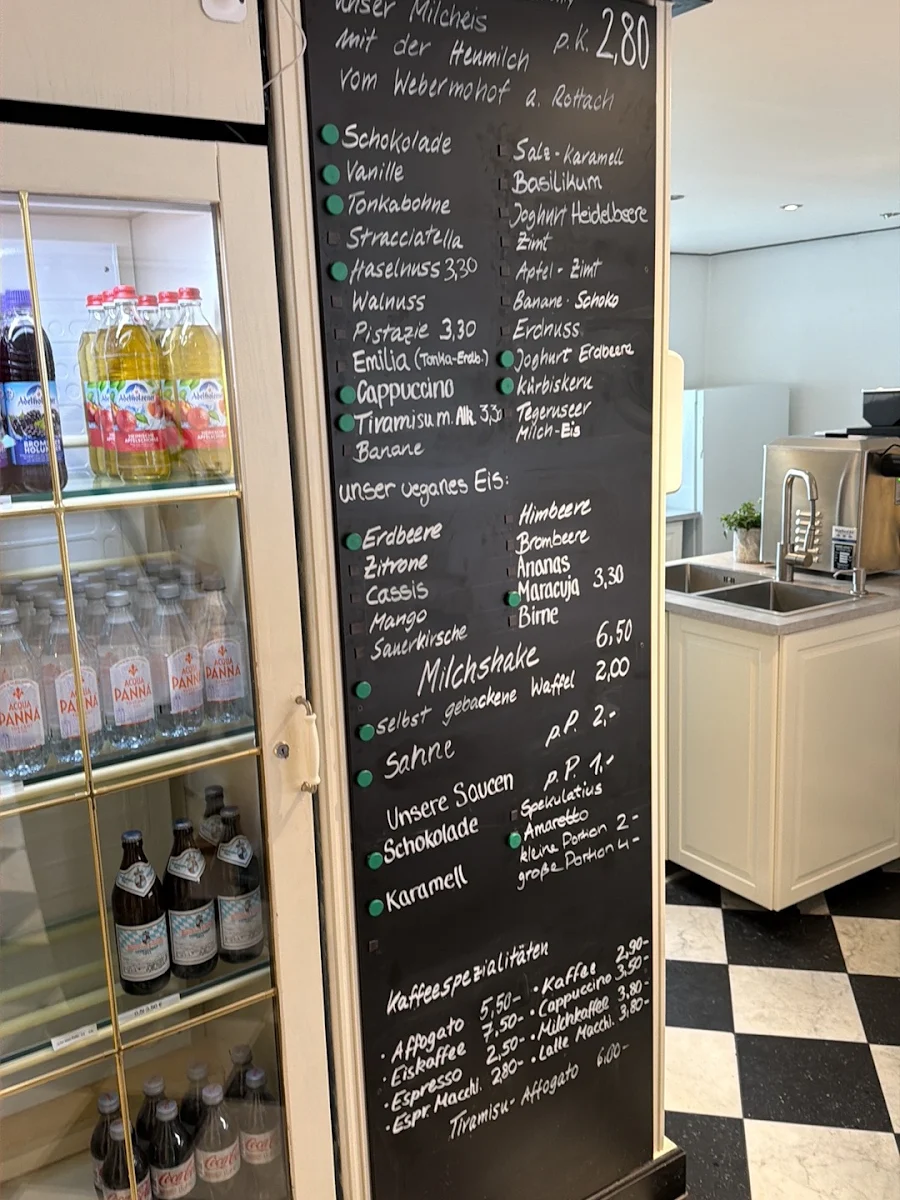 unser Milcheis p.K. 2,80
mit der Heumilch
vom Webermohof a. Rottach
Schokolade
Vanille
Tonkabohne
Stracciatella
Haselnuss 3,30
Walnuss
Pistazie 3,30
Emilia (Tonka-Erdb.)
Cappuccino
Tiramisu m. Alk. 3,30
Banane
Salz-Karamell
Basilikum
Joghurt Heidelbeere
Zimt
Apfel-Zimt
Banane-Schoko
Erdnuss
Joghurt Erdbeere
Kürbiskern
Tegernseer
Milch-Eis
unser veganes Eis:
Erdbeere
Zitrone
Cassis
Mango
Sauerkirsche
Himbeere
Brombeere
Ananas
Maracuja 3,30
Birne
Milchshake 6,50
selbst gebackene Waffel 2,00
Sahne p.P. 2,-
Unsere Saucen p.P. 1,-
Schokolade
Karamell
Spekulatius
Amaretto
kleine Portion 2-
große Portion 4-
Kaffeespezialitäten
· Affogato 5,50-
· Eiskaffee 7,50-
· Espresso 2,50-
· Espr. Macchi. 2,80-
· Kaffee 2,90-
· Cappuccino 3,50-
· Milchkaffee 3,80-
· Latte Macchi. 3,80-
Tiramisu-Affogato 6,00-
Adelholzener
ACQUA
PANNA
ACQUA
PANNA
ACQUA
PANNA
ACQUA
PANNA
ACQUA
PANNA
Coca-Cola